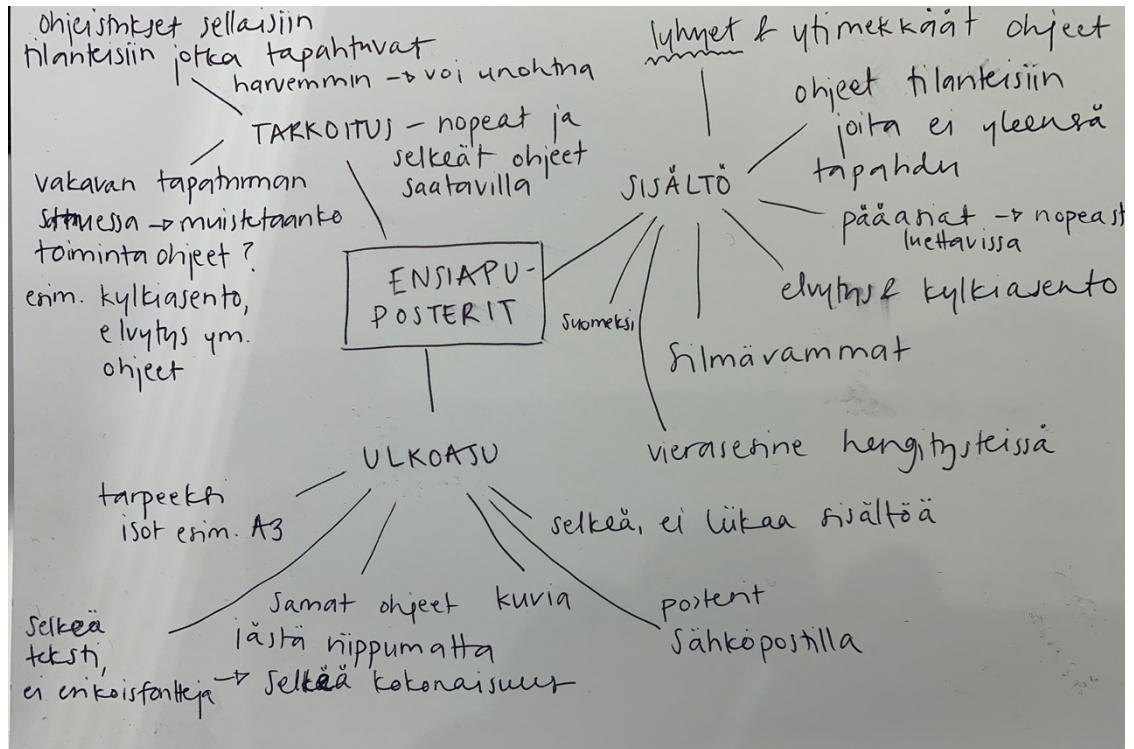 ohjeistukset sellaisiin
tilanteisiin jotka tapahtuvat
harvemmin → voi unohtua
TARKOITUS – nopeat ja
selkeät ohjeet
saatavilla
vakavan tapaturman
sattuessa → muistetaanko
toiminta ohjeet ?
esim. kylkiasento,
elvytys ym.
ohjeet
ENSIAPU-
POSTERIT
lyhyet & ytimekkäät ohjeet
ohjeet tilanteisiin
joita ei yleensä
tapahdu
SISÄLTÖ
pääasiat → nopeast
luettavissa
elvytys & kylkiasento
suomeksi
silmävammat
vierasesine hengitysteissä
ULKOASU
tarpeeksi
isot esim. A3
selkeä, ei liikaa sisältöä
samat ohjeet
iästä riippumatta
→ selkeä kokonaisuus
kuvia
posterit
sähköpostilla
selkeä
teksti,
ei erikoisfontteja